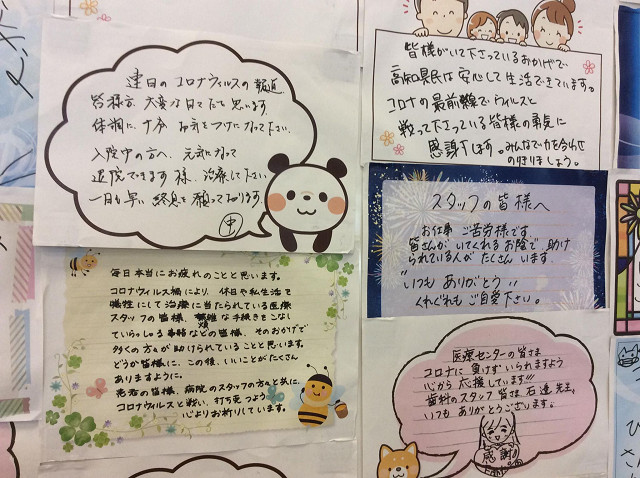 連日のコロナウィルスの報道
皆様方、大変な日々だと思います。
体調に、十分お気をつけになって下さい。
入院中の方へ、元気になって
退院できます様、治療して下さい。
一日も早い終息を願っております。
皆様がいて下さっているおかげで
高知県民は安心して生活できています。
コロナの最前線でウィルスと
戦って下さっている皆様の勇気に
感謝します。みんなで力を合わせ
のりきりましょう。
スタッフの皆様へ
お仕事ご苦労様です。
皆さんがいてくれるお陰で助け
られている人がたくさんいます。
いつもありがとう
くれぐれもご自愛下さい。
毎日本当にお疲れのことと思います。
コロナウィルス禍により、休日や私生活を
犠牲にして治療に当たられている医療
スタッフの皆様、煩雑な手続きをこなし
ていらっしゃる事務などの皆様、そのおかげで
多くの方々が助けられていることと思います。
どうか皆様に、この後、いいことがたくさん
ありますように。
患者の皆様、病院のスタッフの方々と共に、
コロナウィルスと戦い、打ち克つよう
心よりお祈りしています。
医療センターの皆さま
コロナに負けずいられますよう
心から応援しています!!!
歯科のスタッフ皆さま、石達先生、
いつもありがとうございます。
感謝